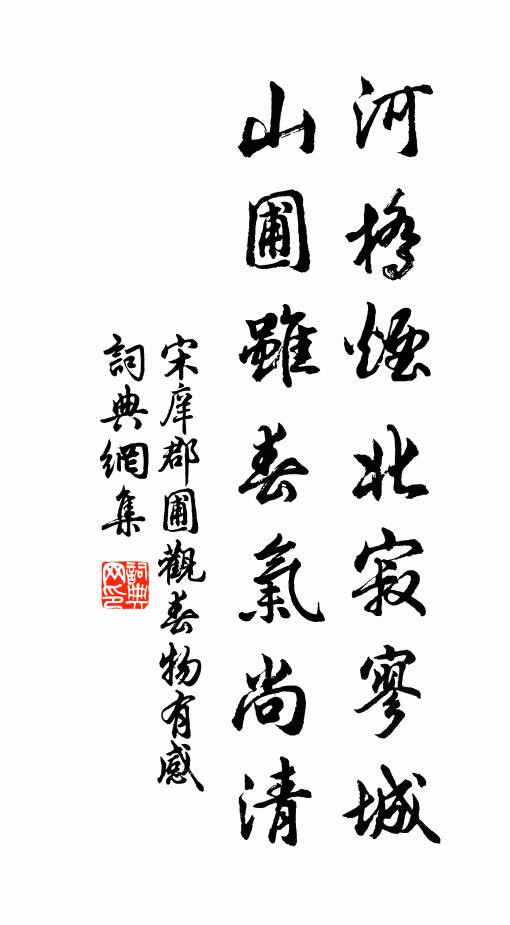 河橋煙北寂寥城
山圃雖春氣尚清
宋庠郡圃觀春物有感
詞典網集
詞典
网印